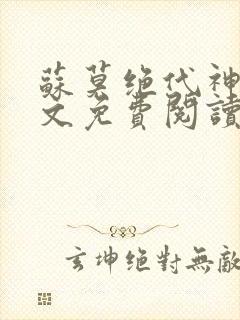 蘇莫绝代神
文免費閱讀
玄坤绝對無敵